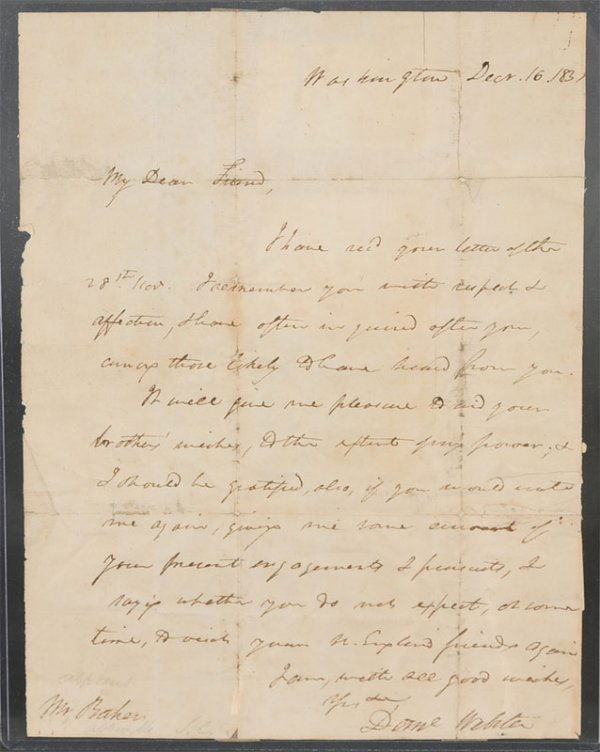 Washington Decr. 16. 183
My Dear Friend,
I have recd your letter of the
28th Nov. I remember you with respect &
affection, & have often inquired after you,
among those likely to have heard from you.
It will give me pleasure to aid your
brothers' wishes, to the extent of my power; &
I should be gratified, also, if you would write
me again, giving me some account of
your present engagements & pursuits, &
saying whether you do not expect, at some
time, to visit your N. England friends again
I am, with all good wishes,
Yrs
Danl Webster
Mr Baker